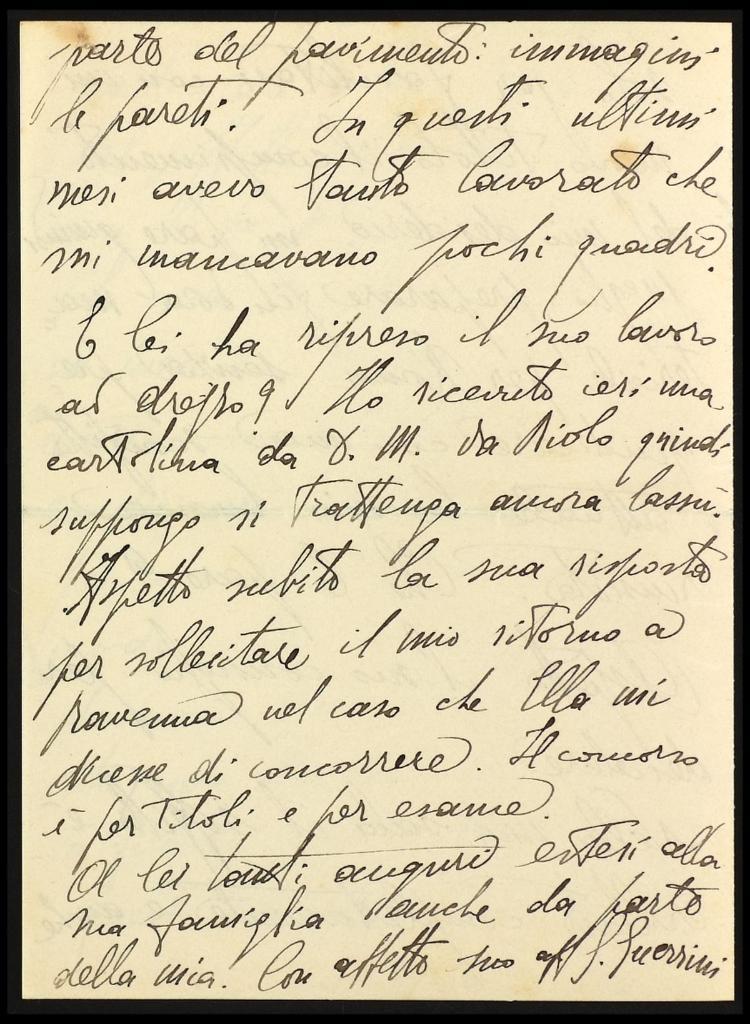 parte del pavimento: immagini
le pareti. In questi ultimi
mesi avevo tanto lavorato che
mi mancavano pochi quadri.
E lei ha ripreso il suo lavoro
ad Ho ricevuto ieri una
cartolina da D. M. da Riolo quindi
suppongo si trattenga ancora lassù.
Aspetto subito la sua risposta
per sollecitare il mio ritorno a
Ravenna nel caso che Ella mi
dicesse di concorrere. Il concorso
è per titoli e per esame.
A lei tanti auguri estesi alla
sua famiglia anche da parte
della mia. Con affetto suo aff G. Guerrini